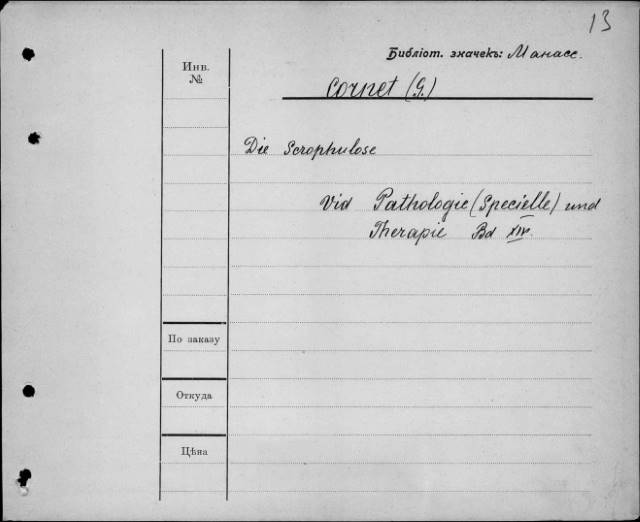 13
Библіот. значекъ: Манасс.
Инв.
№
Cornet (G.)
Die Scrophulose
Vid Pathologie (Specielle) und
Therapie Bd XIV.
По заказу
Откуда
Цѣна